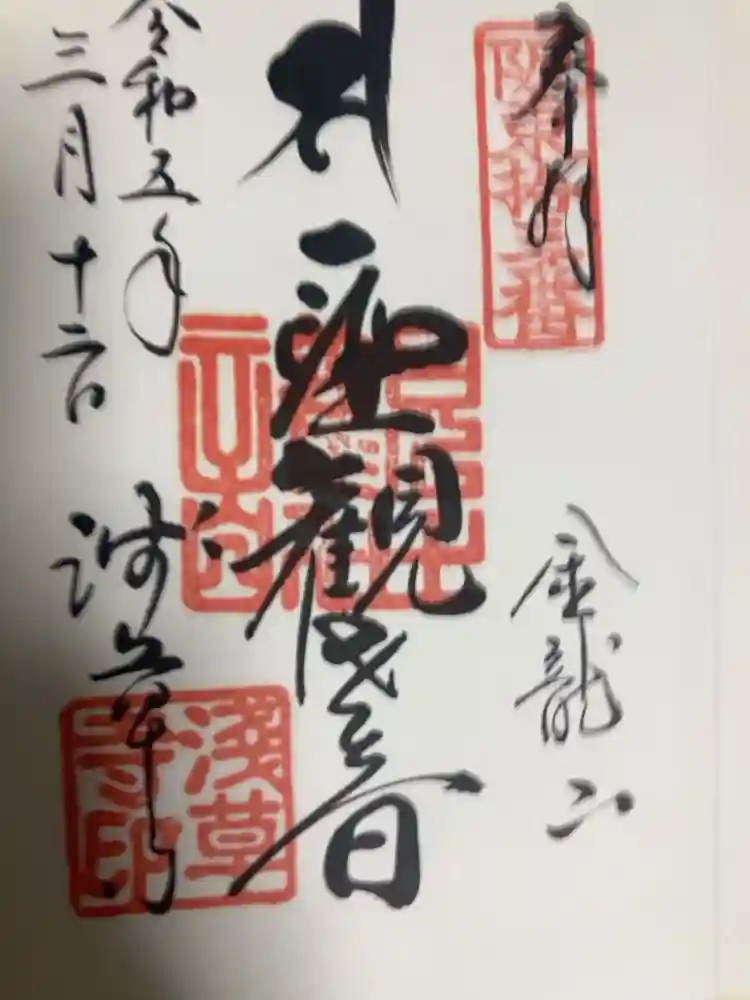 奉拝
坂東拾三番
金龍山
聖観世音
令和五年
三月十二日
浅草寺
浅草
寺印